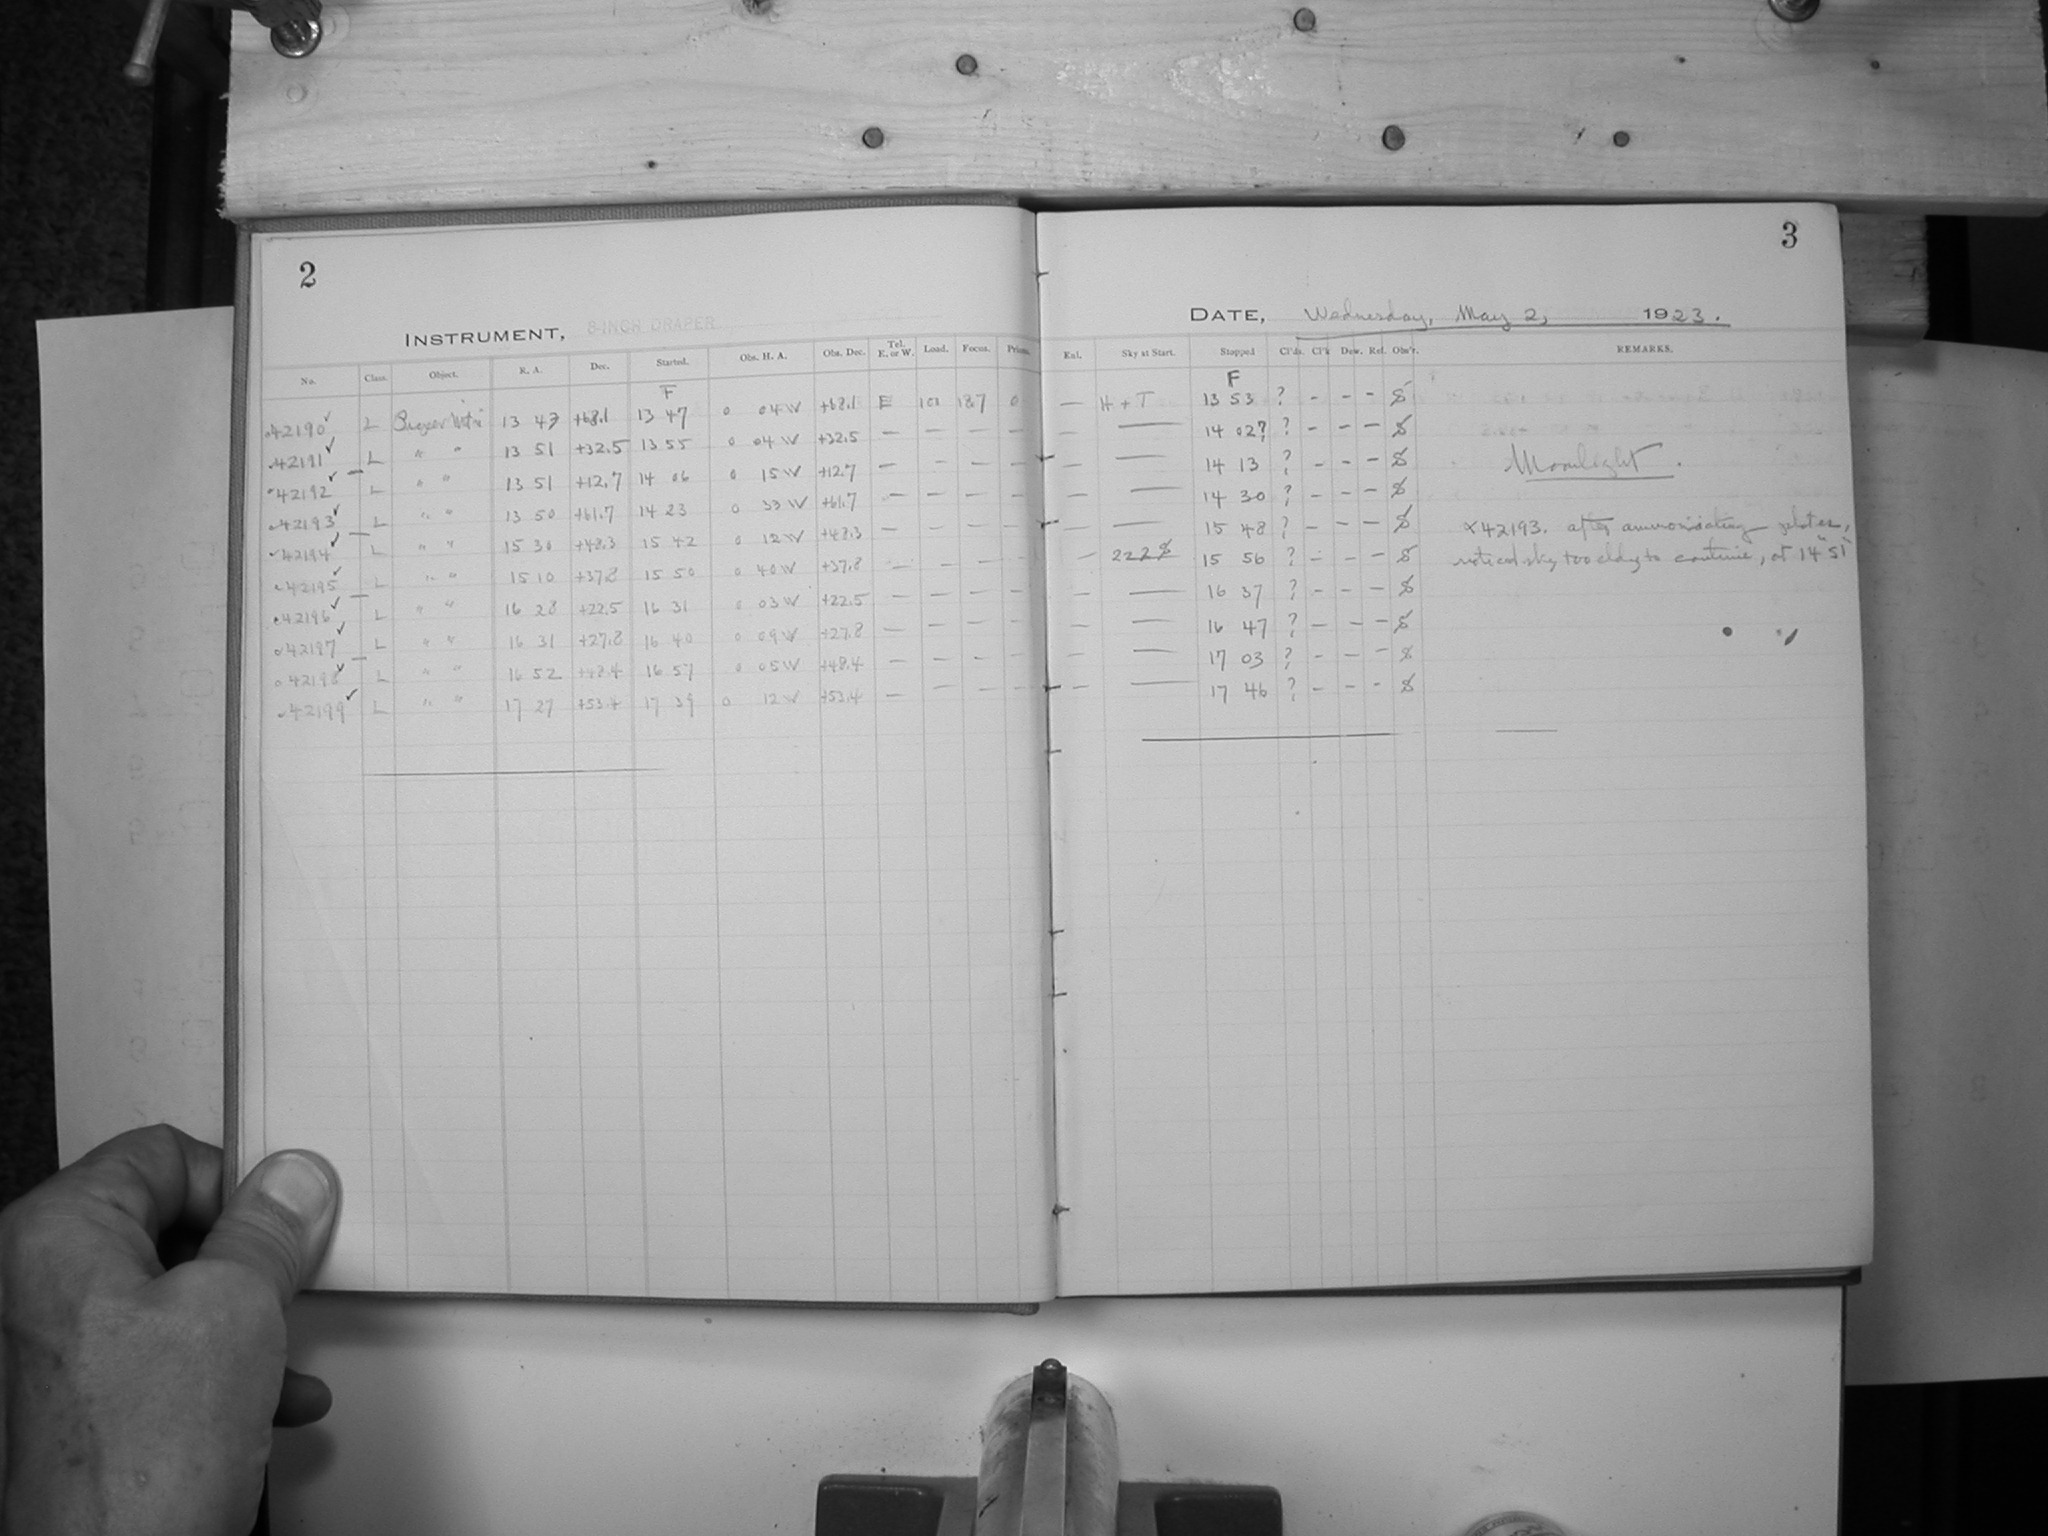 2
INSTRUMENT, 8-INCH DRAPER
No. Class. Object. R. A. Dec. Started. Obs. H. A. Obs. Dec. Tel. E. or W. Load. Focus. Prism.
F
42190 ✓ L 13 47 +68.1 13 47 0 04 W +68.1 E 101 187 0
42191 ✓ L " " 13 51 +32.5 13 55 0 04 W +32.5 — — — —
42192 ✓ L " " 13 51 +12.7 14 06 0 15 W +12.7 — — — —
42193 ✓ L " " 13 50 +61.7 14 23 0 33 W +61.7 — — — —
42194 ✓ L " " 15 30 +48.3 15 42 0 12 W +48.3 — — — —
42195 ✓ L " " 15 10 +37.8 15 50 0 40 W +37.8 — — — —
42196 ✓ L " " 16 28 +22.5 16 31 0 03 W +22.5 — — — —
42197 ✓ L " " 16 31 +27.8 16 40 0 09 W +27.8 — — — —
42198 ✓ L " " 16 52 +48.4 16 57 0 05 W +48.4 — — — —
42199 ✓ L " " 17 27 +53.4 17 39 0 12 W +53.4 — — — —
3
DATE, Wednesday, May 2, 1923.
Exl. Sky at Start. Stopped Cl'ds. Cl'k Dew. Ref. Obs'r. REMARKS.
F
— H + T 13 53 ? - - - S
— — 14 02? ? - - - S
— — 14 13 ? - - - S
Moonlight.
— — 14 30 ? - - - S
— — 15 48 ? - - - S
x 42193. after ammoniating plates,
— 222S 15 56 ? - - - S
noticed sky too cldy to continue, at 14h 51
— — 16 37 ? - - - S
— — 16 47 ? - - - S
— — 17 03 ? - - - S
— — 17 46 ? - - - S